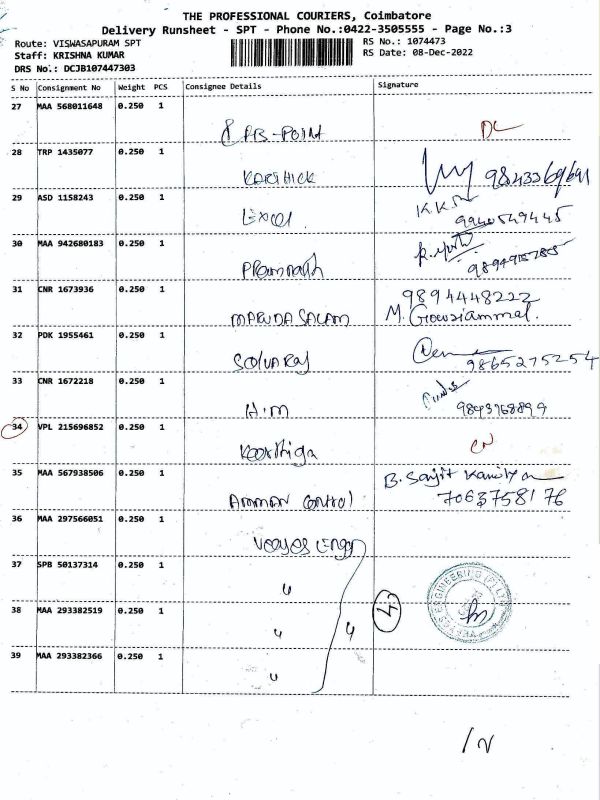 THE PROFESSIONAL COURIERS, Coimbatore
Delivery Runsheet - SPT - Phone No.:0422-3505555 - Page No.:3
Route: VISWASAPURAM SPT
RS No.: 1074473
Staff: KRISHNA KUMAR
RS Date: 08-Dec-2022
DRS No.: DCJB107447303
S No Consignment No Weight PCS Consignee Details Signature
27 MAA 568011648 0.250 1
PB-POINT DL
28 TRP 1435077 0.250 1
KARTHICK 9843369691
29 ASD 1158243 0.250 1
Excel KKS 9940549445
30 MAA 942680183 0.250 1
Premnath
31 CNR 1673936 0.250 1
9894448222
MARUDASALAM M. Gowsiammal.
32 PDK 1955461 0.250 1
SELVARAJ 9865275254
33 CNR 1672218 0.250 1
H.M 9843768899
34 VPL 215696852 0.250 1
Keerthiga CN
35 MAA 567938506 0.250 1
B. Sanjit
AMMAN Control 7063758176
36 MAA 297566051 0.250 1
Veejes Engg
37 SPB 50137314 0.250 1
"
38 MAA 293382519 0.250 1
" 4 4
39 MAA 293382366 0.250 1
"
ENGINEERING (P) LTD